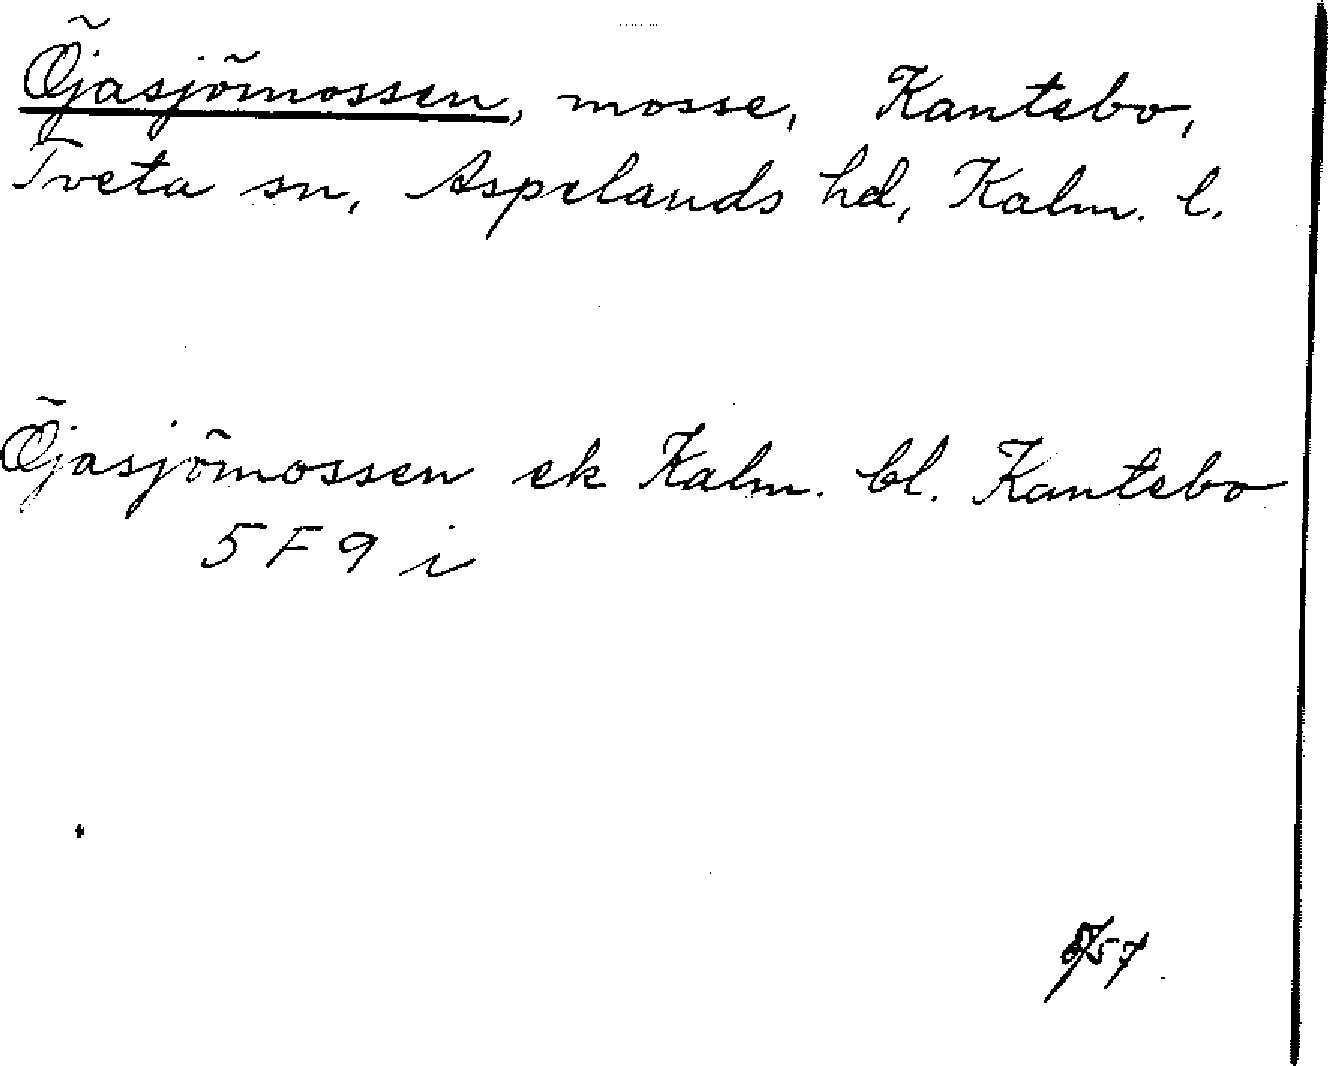 Öjasjömossen, mosse, Kantebo,
Tveta sn, Aspelands hd, Kalm. l.
Öjasjömossen ek Kalm. bl. Kantebo
5 F 9 i